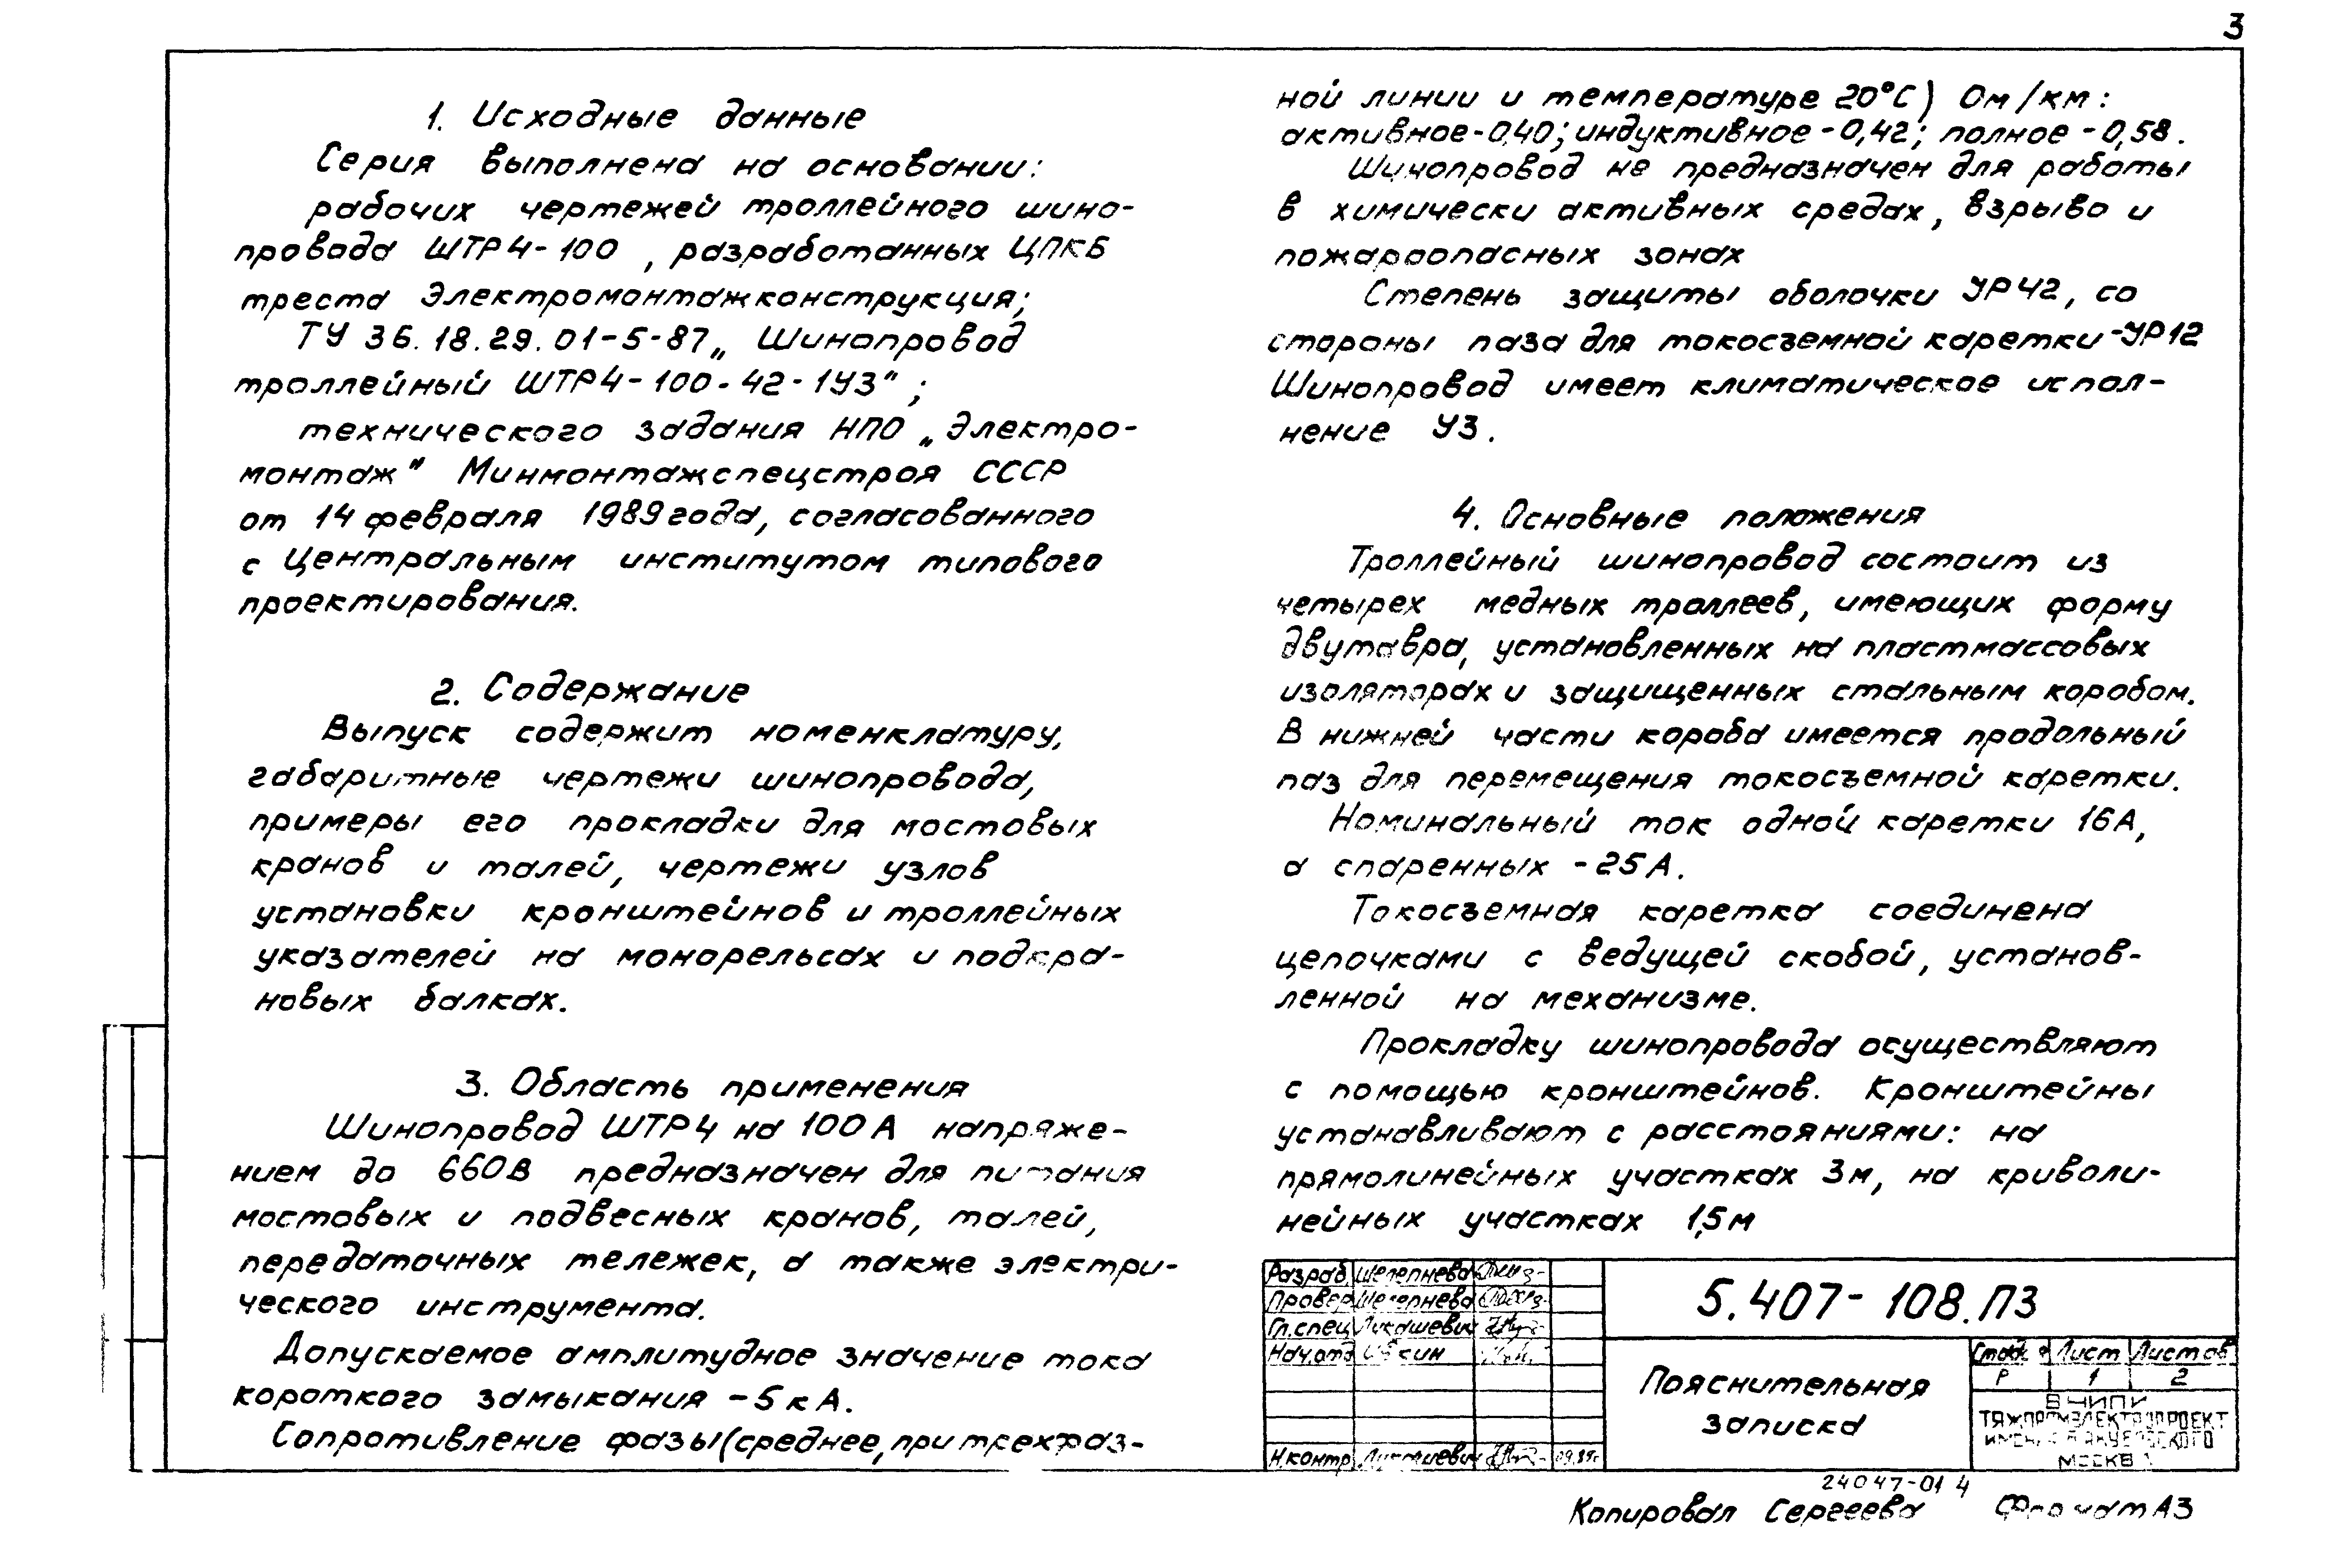 3
1. Исходные данные
Серия выполнена на основании:
рабочих чертежей троллейного шино-
провода ШТР4-100, разработанных ЦПКБ
треста Электромонтажконструкция;
ТУ 36.18.29.01-5-87 „Шинопровод
троллейный ШТР4-100-42-1У3";
технического задания НПО „Электро-
монтаж" Минмонтажспецстроя СССР
от 14 февраля 1989 года, согласованного
с Центральным институтом типового
проектирования.
2. Содержание
Выпуск содержит номенклатуру,
габаритные чертежи шинопровода,
примеры его прокладки для мостовых
кранов и талей, чертежи узлов
установки кронштейнов и троллейных
указателей на монорельсах и подкра-
новых балках.
3. Область применения
Шинопровод ШТР4 на 100А напряже-
нием до 660В предназначен для питания
мостовых и подвесных кранов, талей,
передаточных тележек, а также электри-
ческого инструмента.
Допускаемое амплитудное значение тока
короткого замыкания - 5кА.
Сопротивление фазы (среднее, при трехфаз-
ной линии и температуре 20°С) Ом/км:
активное-0,40; индуктивное-0,42; полное-0,58.
Шинопровод не предназначен для работы
в химически активных средах, взрыво и
пожароопасных зонах
Степень защиты оболочки УР42, со
стороны паза для токосъемной каретки-УР12
Шинопровод имеет климатическое испол-
нение У3.
4. Основные положения
Троллейный шинопровод состоит из
четырех медных троллеев, имеющих форму
двутавра, установленных на пластмассовых
изоляторах и защищенных стальным коробом.
В нижней части короба имеется продольный
паз для перемещения токосъемной каретки.
Номинальный ток одной каретки 16А,
а спаренных -25А.
Токосъемная каретка соединена
цепочками с ведущей скобой, установ-
ленной на механизме.
Прокладку шинопровода осуществляют
с помощью кронштейнов. Кронштейны
устанавливают с расстояниями: на
прямолинейных участках 3м, на криволи-
нейных участках 1,5м
Разраб. Шегепнева
Провер Шегепнева
Гл.спец Лукашевич
Нач.отд
Н.контр Лукашевич 09.89г
5.407-108.ПЗ
Пояснительная
записка
Стадия Лист Листов
Р 1 2
ВНИПИ
ТЯЖПРОМЭЛЕКТРОПРОЕКТ
ИМЕНИ Ф.Б.ЯКУБОВСКОГО
МОСКВА
24047-01 4
Копировал Сергеева Формат А3